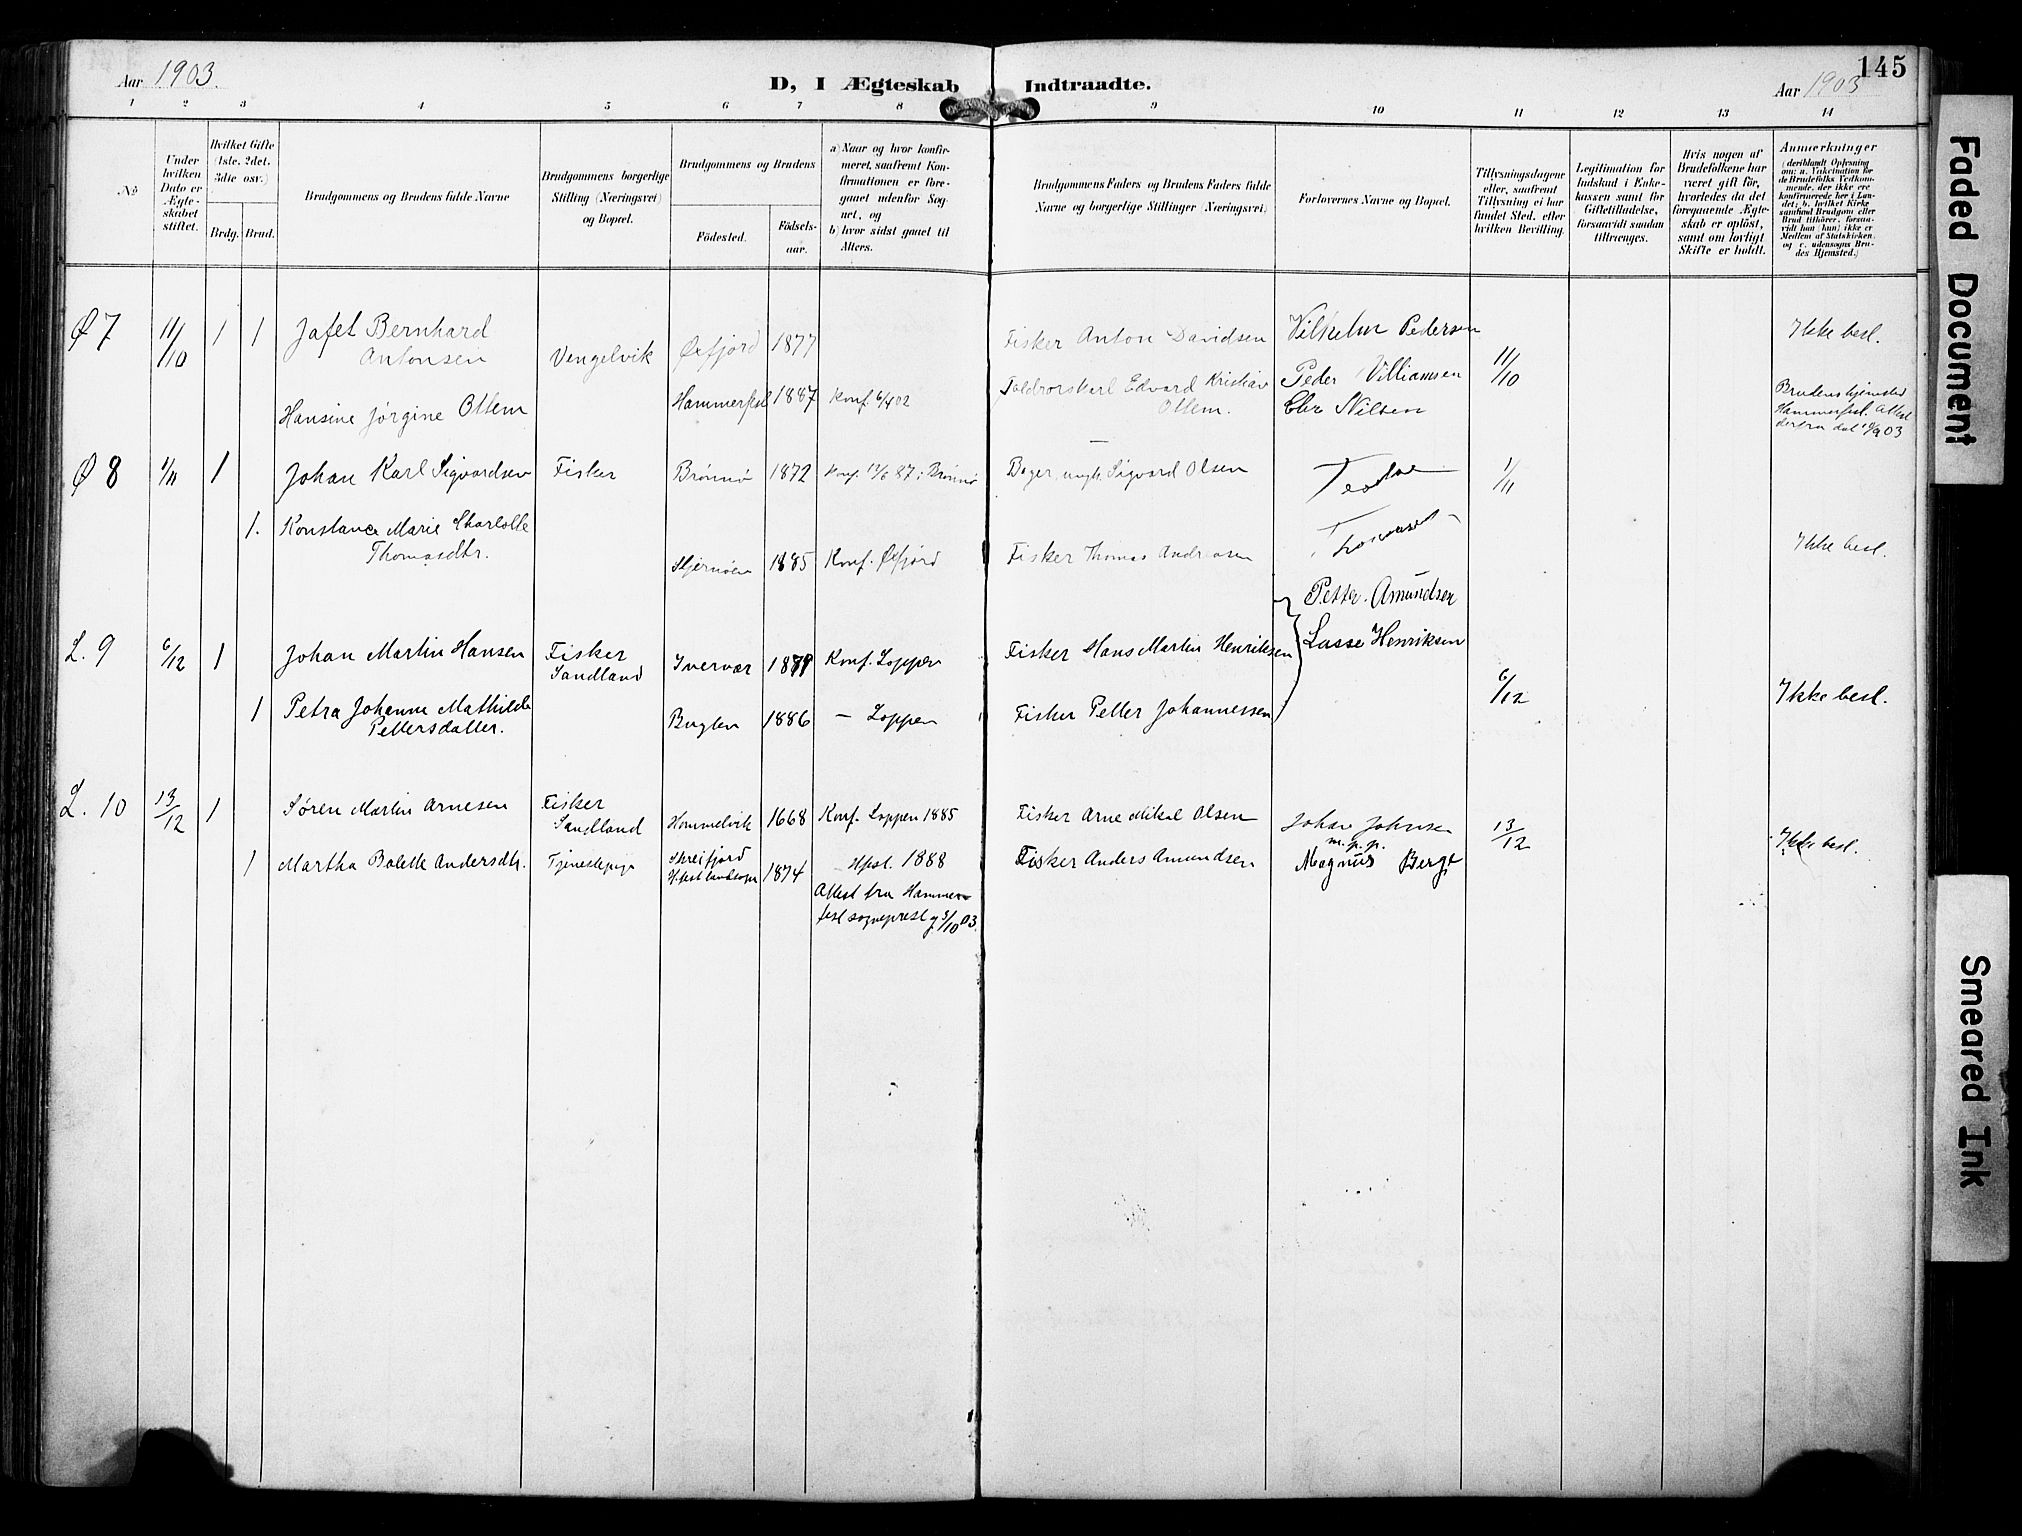 145
Aar 1903.
D, I Ægteskab Indtraadte.
Aar 1903
1 2 3 4 5 6 7 8 9 10 11 12 13 14
No
Under hvilken Dato er Ægteskabet stiftet.
Hvilket Gifte (1ste, 2det, 3die osv.)
Brdg. Brud.
Brudgommens og Brudens fulde Navne
Brudgommens borgerlige Stilling (Næringsvei) og Bopæl.
Brudgommens og Brudens
Födested.
Födselsaar.
a) Naar og hvor konfirmeret, saafremt Konfirmationen er foregaaet udenfor Sognet, og
b) hvor sidst gaaet til Alters.
Brudgommens Faders og Brudens Faders fulde Navne og borgerlige Stillinger (Næringsvei)
Forlovernes Navne og Bopæl.
Tillysningsdagene eller, saafremt Tillysning ei har fundet Sted, efter hvilken Bevilling.
Legitimation for Indskud i Enkekassen samt for Giftetilladelse, forsaavidt saadan tiltrænges.
Hvis nogen af Brudefolkene har været gift för, hvorledes da det foregaaende Ægteskab er oplöst, samt om lovligt Skifte er holdt.
Anmærkninger
(deriblandt Oplysning om: a. Vakcination for de Brudefolks Vedkommende, der ikke ere konfirmerede her i Landet; b. hvilket Kirkesamfund Brudgom eller Brud tilhörer, forsaavidt han (hun) ikke er Medlem af Statskirken, og c. udensogns Brudes Hjemsted.)
Ø 7 11/10 1 1 Jafet Bernhard Antonsen Vengelvik Øxfjord 1877 Fisker Anton Davidsen Vilhelm Pedersen 11/10 Ikke besl.
Hansine Jørgine Ottem Hammerfest 1887 Konf. 6/4 02 Edvard Kristian Ottem. Peder Villiamsen
Chr Nilsen
Brudens hjemsted Hammerfest. Attest derfra dat 03
Ø 8 1/11 1 Johan Karl Sigvardsen Fisker Brønnø 1872 Konf. 87 i Brønnø Sigvard Olsen 1/11
1. Konstance Marie Charlotte Thomasdtr. Stjernøen 1885 Konf. Øxfjord Fisker Thomas Andreasen Ikke besl.
Petter Amundsen
L. 9 6/12 1 Johan Martin Hansen Fisker Sandland Ivervær 1879 Konf. Loppen Fisker Hans Martin Henriksen Lasse Henriksen
1 Petra Johanne Mathilde Pettersdatter. Buglen 1886 — Loppen Fisker Petter Johannessen 6/12 Ikke besl.
L. 10 13/12 1 Søren Martin Arnesen Fisker Sandland Hommelvik 1668 Konf. Loppen 1885 Fisker Arne Mikal Olsen Johan Johnsen m. p. p. 13/12 Ikke besl.
1 Martha Bolette Andersdtr. Tjenestepige Skreifjord Hfest landsogn 1874 Hfest. 1888 Fisker Anders Amundsen Magnus Berg
Attest fra Hammerfest sogneprest 03.
Faded Document
Smeared Ink